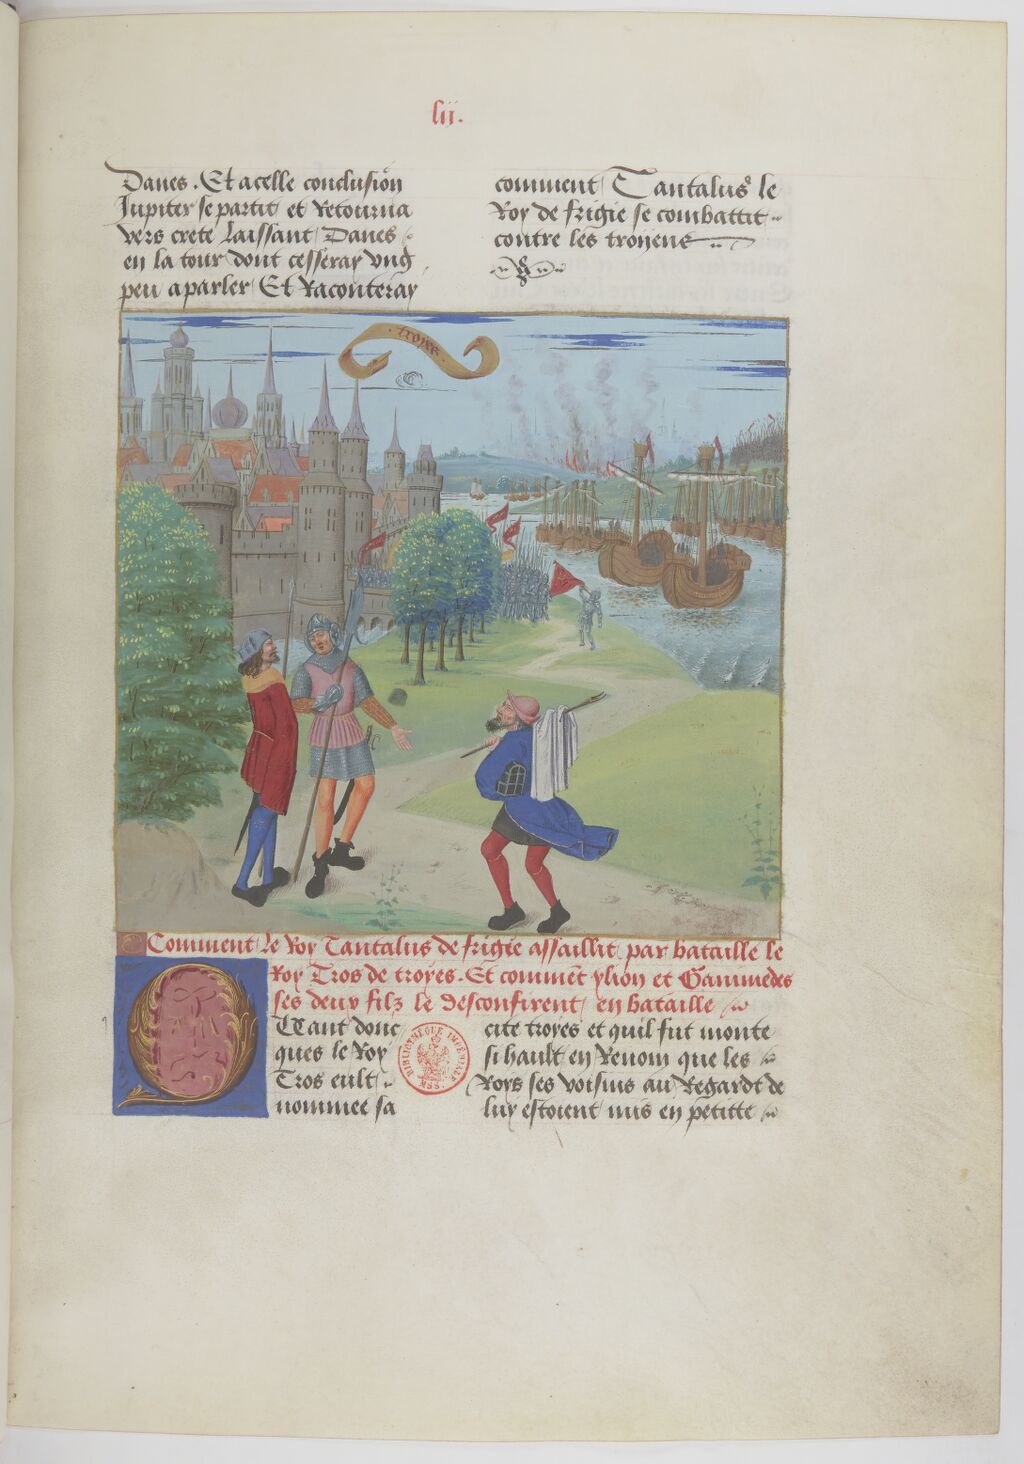 lij.
Danes. Et a celle conclusion
Jupiter se partit et Retourna
vers crete Laissant Danes
en la tour dont cesseray vng
peu a parler Et Raconteray
comment Tantalus le
Roy de frigie se combattit
contre les troyens
troyes
Comment le Roy Tantalus de frigie assaillit par bataille le
Roy Tros de troyes. Et comment ylion et Ganimedes
ses deux filz le desconfirent en bataille
QUant donc
ques le Roy
Tros eult
nommee sa
cite troyes et quil fut monte
si hault en Renom que les
Roys ses voisins au Regardt de
luy estoient mis en petitte
BIBLIOTHÈQUE IMPÉRIALE
MSS.